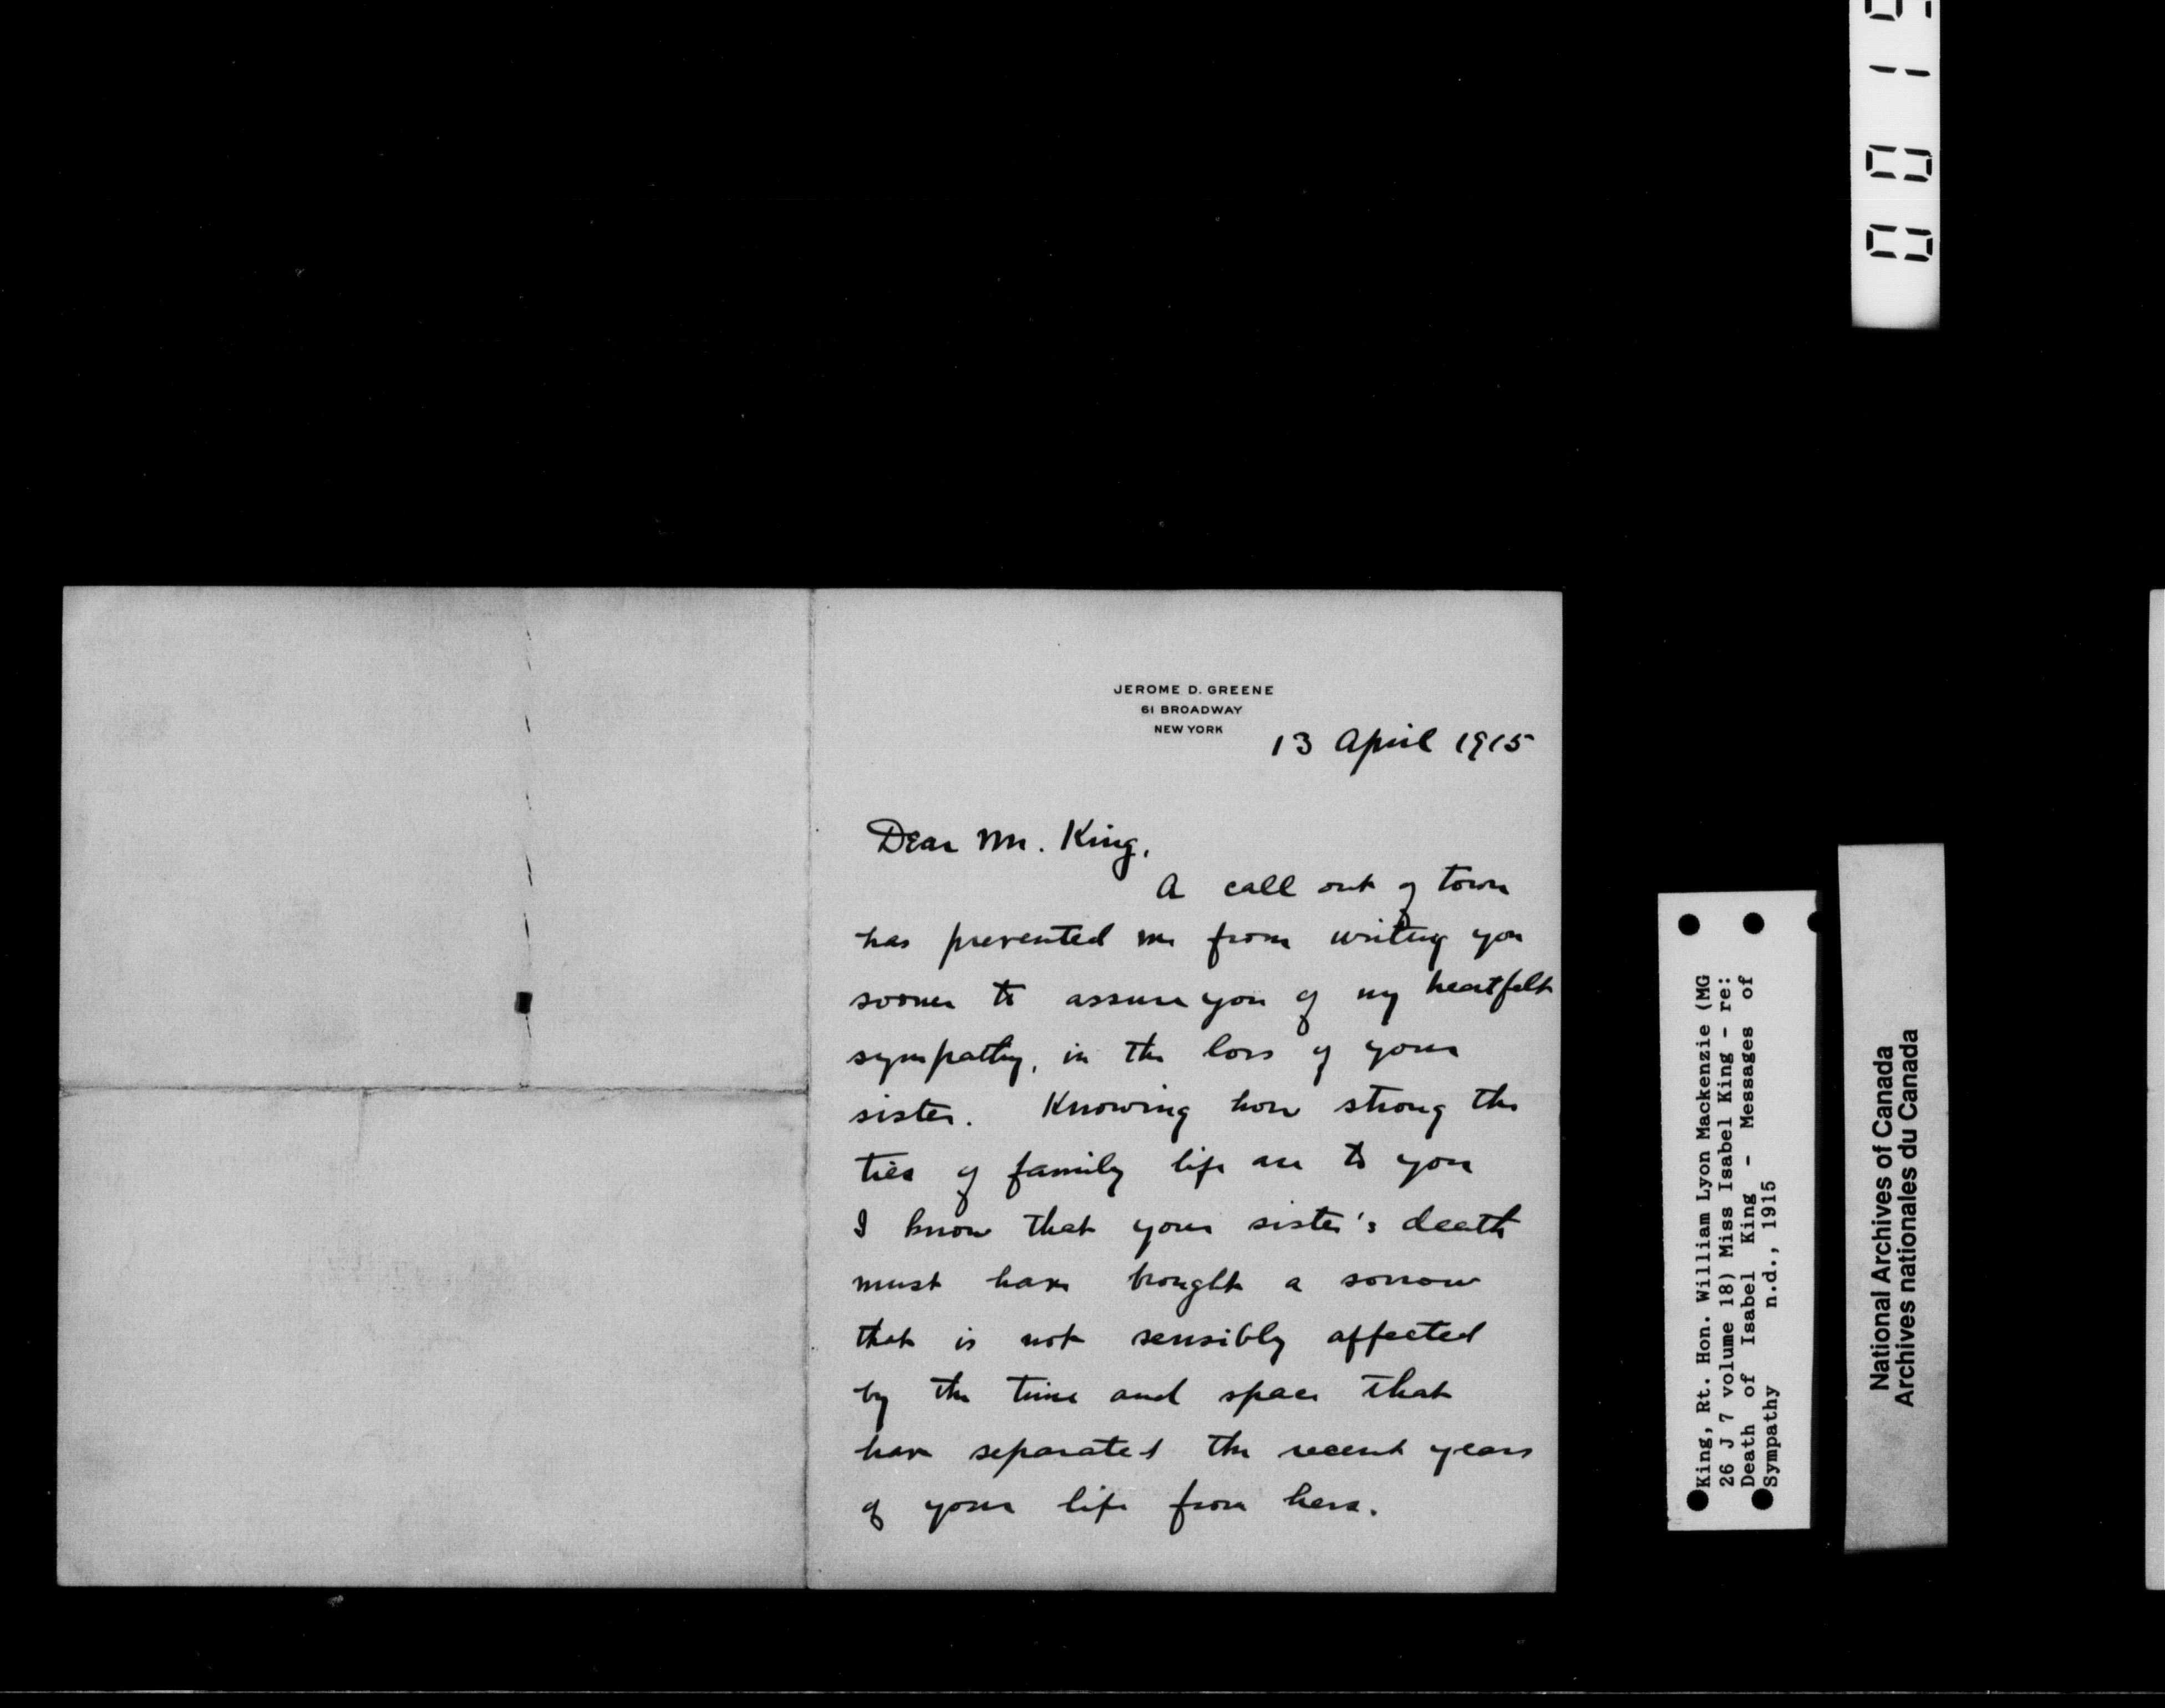 JEROME D. GREENE
61 BROADWAY
NEW YORK
13 April 1915
Dear Mr. King,
A call out of town
has prevented me from writing you
sooner to assure you of my heartfelt
sympathy, in the loss of your
sister. Knowing how strong the
ties of family life are to you
I know that your sister's death
must have brought a sorrow
that is not sensibly affected
by the time and space that
have separated the recent years
of your life from hers.
King, Rt. Hon. William Lyon Mackenzie (MG
26 J 7 volume 18) Miss Isabel King - re:
Death of Isabel King - Messages of
Sympathy n.d., 1915
National Archives of Canada
Archives nationales du Canada